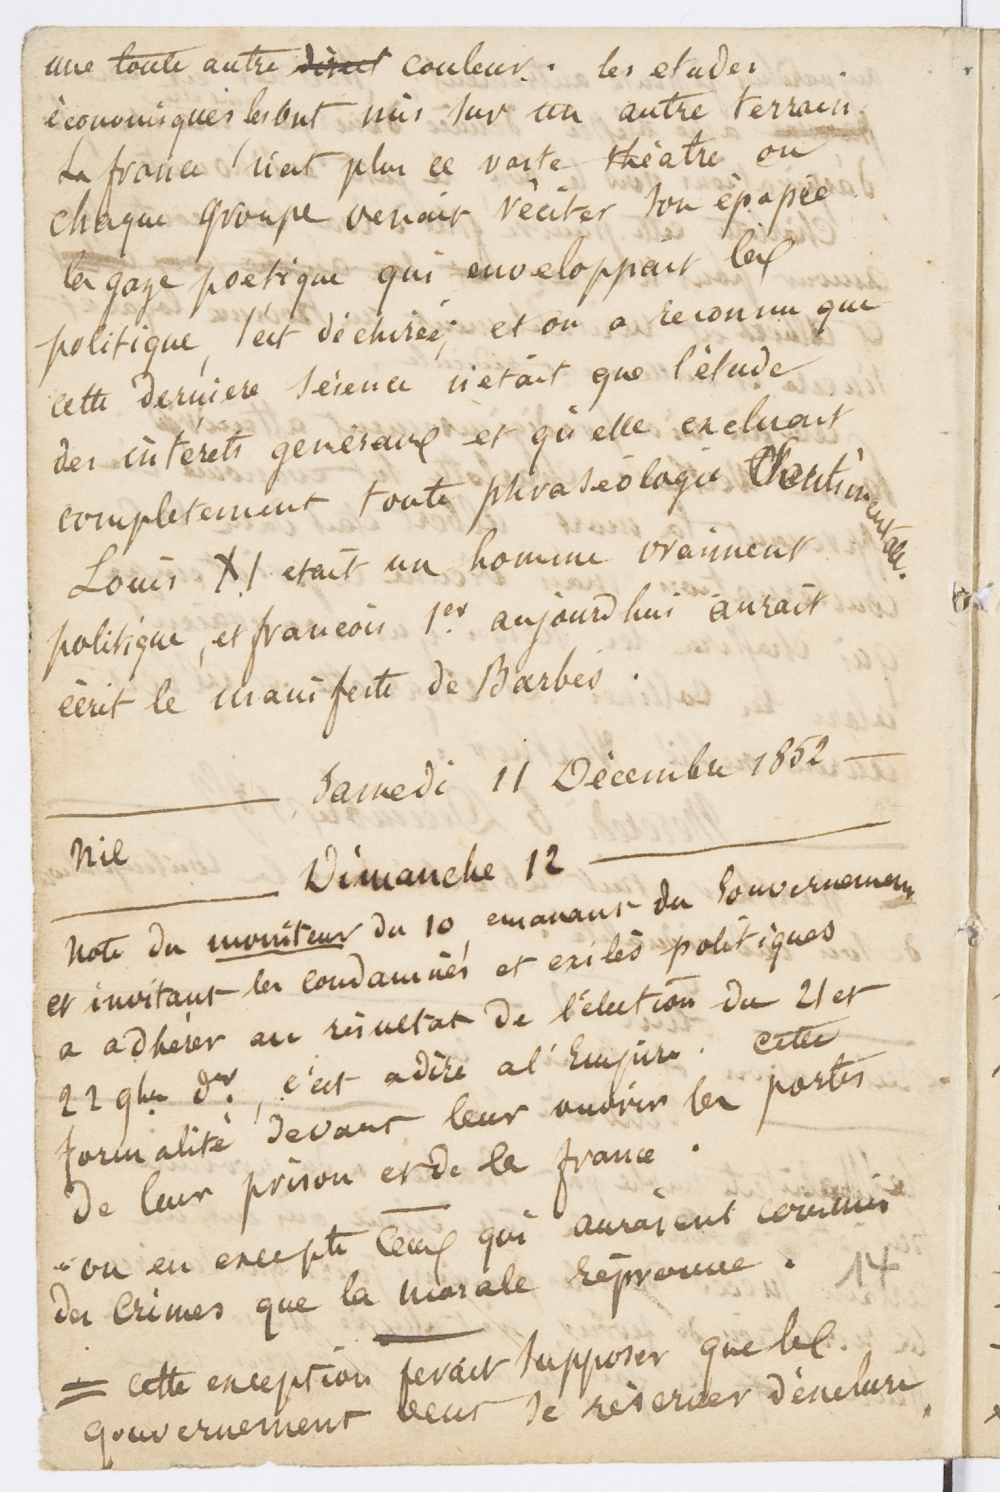 une toute autre direct couleur. les etudes
économiques les ont mis sur un autre terrain.
La france n'est plus ce vaste théatre ou
chaque groupe venait réciter son épopée
la gaze poetique qui enveloppait la
politique, s'est déchirée; et on a reconnu que
cette derniere science n'etait que l'étude
des intérets generaux et qu'elle excluait
completement toute phraséologie sentimentale.
Louis XI etait un homme vraiment
politique, et francois 1er. aujourdhui aurait
écrit le manifeste de Barbès.
Samedi 11 Décembre 1852
Nil
Dimanche 12
Note du moniteur du 10 emanant du Gouvernement
et invitant les condamnés et exilés politiques
a adhérer au résultat de l'élection du 21 et
22 9bre der, c'est adire a l'Empire. cette
formalité devant leur ouvrir les portes
de leur prison et de la france.
on en excepte ceux qui auraient commis
des crimes que la morale réprouve.
14
= cette exception ferait supposer que le
gouvernement veut se réserver d'exclure